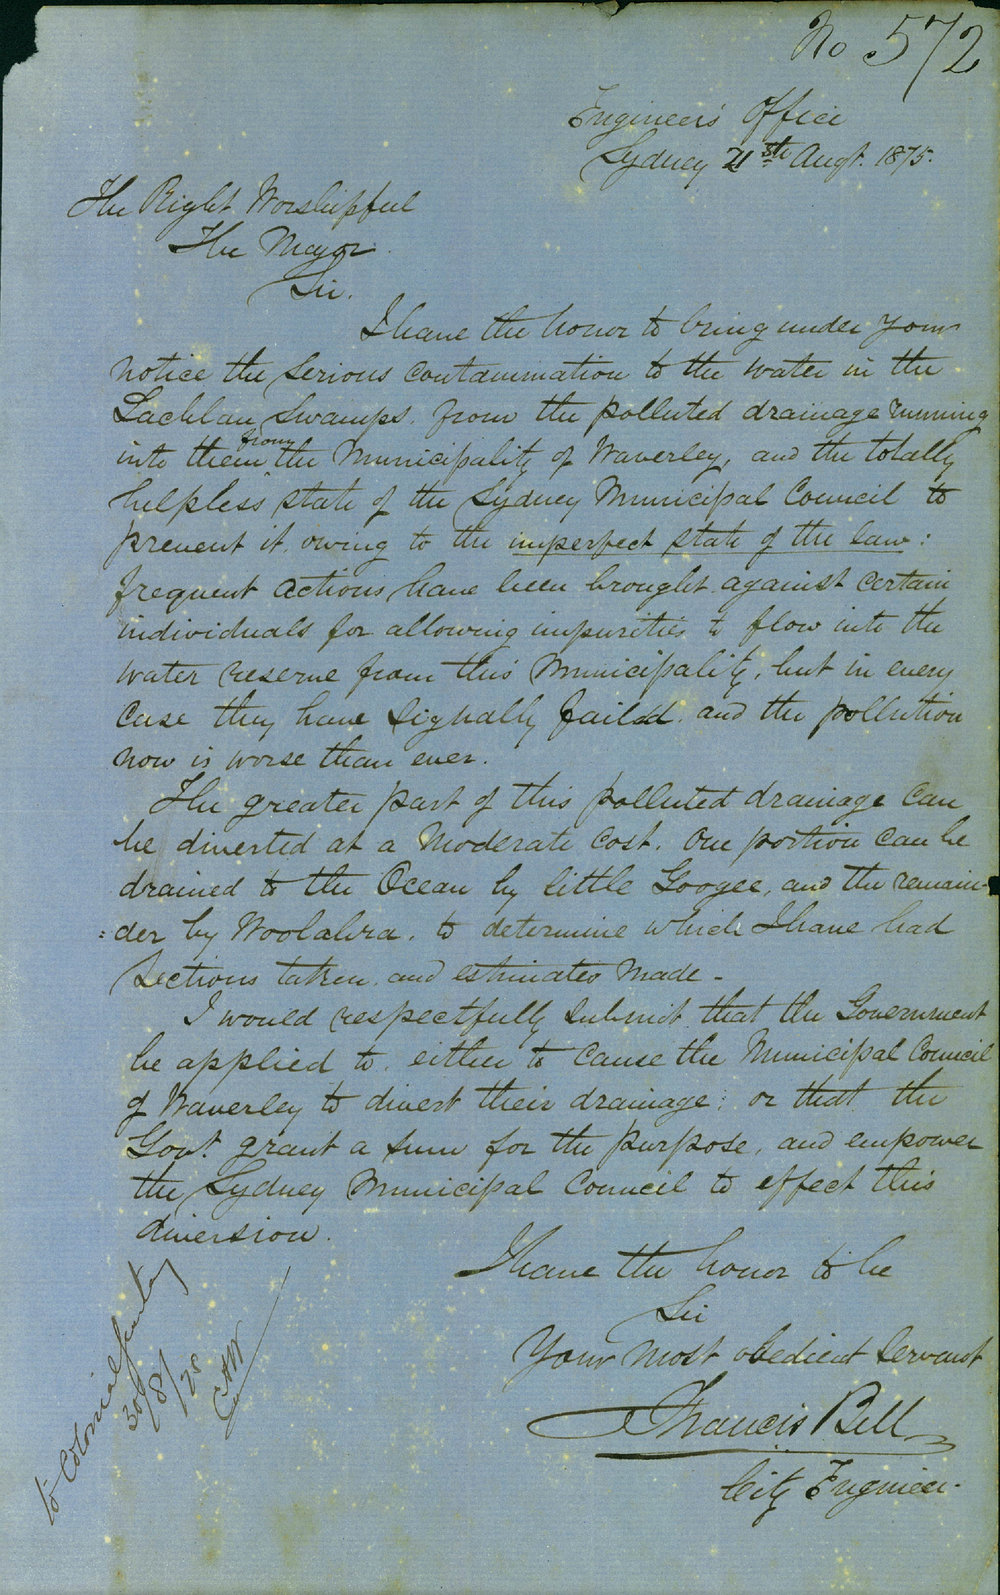 No 572
Engineers Office
Sydney 21st Augt. 1875.
The Right Worshipful
The Mayor.
Sir.
I have the honor to bring under your
notice the serious contamination to the water in the
Lachlan Swamps. from the polluted drainage running
into them from the Municipality of Waverley, and the totally
helpless state of the Sydney Municipal Council to
prevent it. owing to the imperfect state of the law:
frequent actions have been brought against certain
individuals for allowing impurities to flow into the
water reserve from this Municipality, but in every
case they have signally failed. and the pollution
now is worse than ever.
The greater part of this polluted drainage can
be diverted at a moderate cost. One portion can be
drained to the Ocean by little Googee, and the remain-
:der by Woolahra. to determine which I have had
sections taken. and estimates made -
I would respectfully submit that the Government
be applied to. either to cause the Municipal Council
of Waverley to divert their drainage: or that the
Govt. grant a sum for the purpose, and empower
the Sydney Municipal Council to effect this
diversion.
I have the honor to be
Sir
Your most obedient servant
Francis Bell
City Engineer.
to Colonial
30/8/75